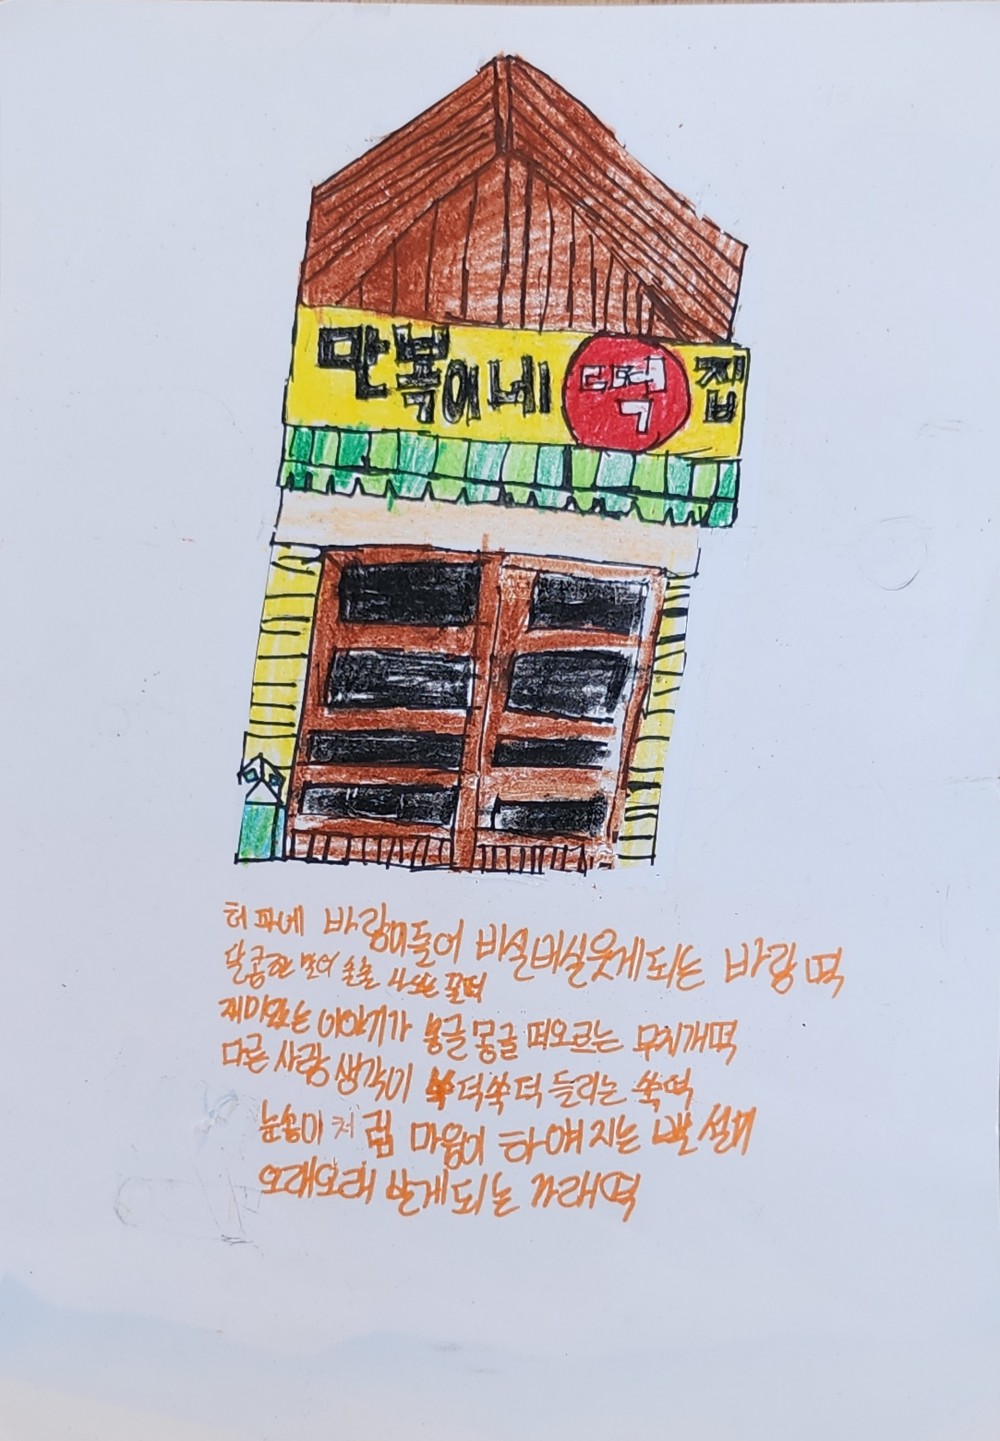 만복이네 떡집
허파에 바람이들어 비실비실웃게되는 바람떡
달콤한 말이 술술 나오는 꿀떡
재미있는 이야기가 몽글몽글 떠오르는 무지개떡
다른 사람 생각이 쑥덕쑥덕 들리는 쑥떡
눈송이처럼 마음이 하얘지는 백설기
오래오래 살게되는 가래떡